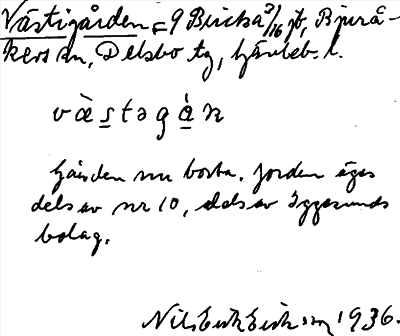 Västigården = 9 Bricka 3/16 jb, Bjurå-
kers sn, Delsbo tg, Gävleb. l.
v ɛ̀ s t ə g å̀ n
Gården nu borta. Jorden äges
dels av nr 10, dels av Iggesunds
bolag.
Nils Erik Eriksson 1936.